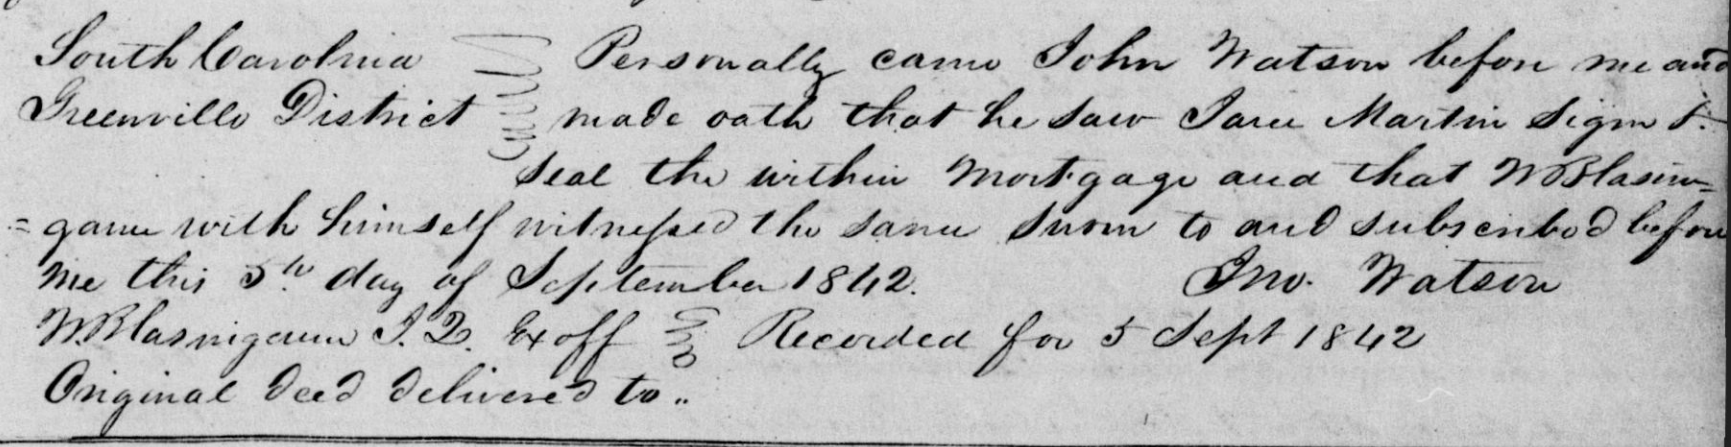 South Carolina Personally came John Watson before me and
Greenville District made oath that he saw Jane Martin sign &
seal the within Mortgage and that W Blasin=
=game with himself witnessed the same Sworn to and subscribed before
me this 5th day of September 1842. Jno. Watson
W. Blasingame J. Q. Ex off Recorded for 5 Sept 1842
Original deed delivered to..